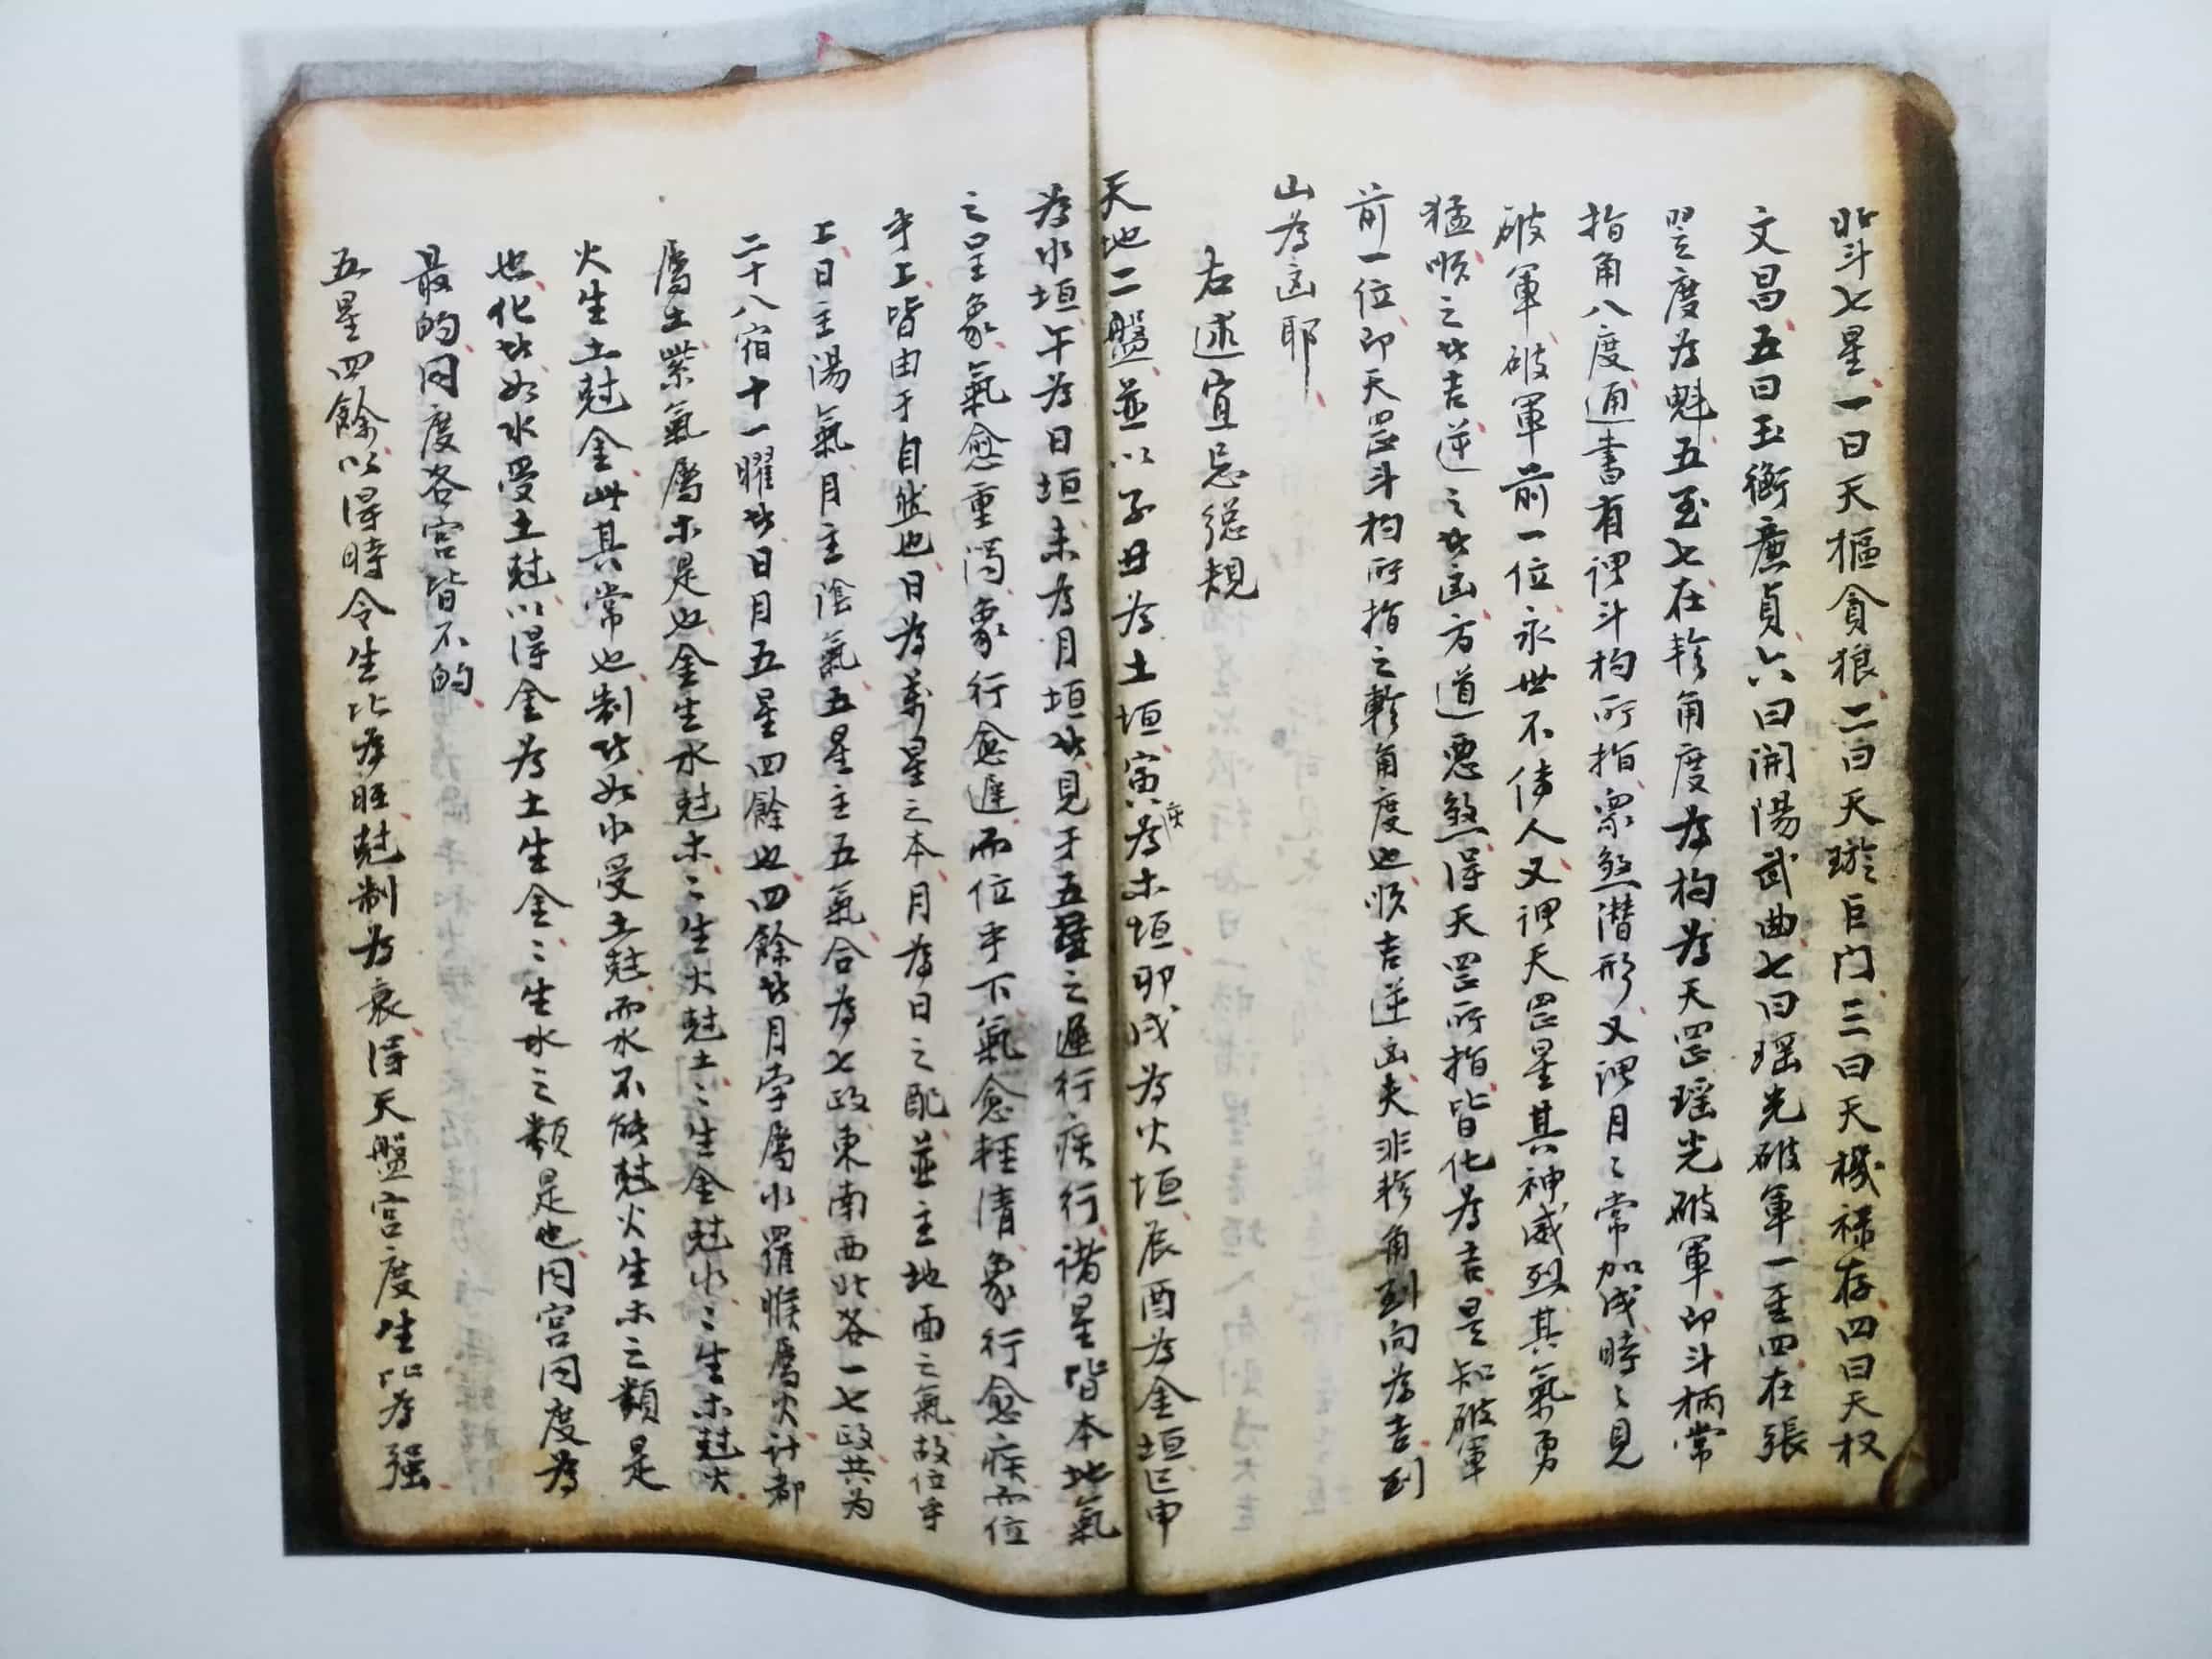 北斗七星一曰天樞貪狼二曰天璇巨门三曰天機祿存四曰天权
文昌五曰玉衡廉貞六曰開陽武曲七曰瑶光破軍一至四在張
翌度為魁五至七在軫角度為杓為天罡瑶光破軍即斗柄常
指角八度通書有謂斗杓所指眾煞潛形又謂月〻常加戌時〻見
破軍破軍前一位永世不傳人又謂天罡星其神威烈其氣勇
猛順之者吉逆之者凶方道惡煞得天罡所指皆化為吉是知破軍
前一位即天罡斗杓所指之軫角度也順吉逆凶夫非軫角到向為吉到
山為凶耶
右述宜忌總規
天地二盤並以子丑為土垣寅亥為木垣卯戌為火垣辰酉為金垣巳申
為水垣午為日垣未為月垣者見于五星之遲行疾行諸星皆本地氣
之呈象氣愈重濁象行愈遲而位乎下氣愈輕清象行愈疾而位
乎上皆由于自然也日為萬星之本月為日之配並主地面之氣故位乎
上日主湯氣月主陰氣五星主五氣合為七政東南西北各一七政共为
二十八宿十一曜者日月五星四餘也四餘者月孛屬水羅睺屬火计都
屬土紫氣屬木是也金生水尅木〻生火尅土〻生金尅水〻生木尅火
火生土尅金此其常也制者如水受土尅而水不能尅火生木之類是
也化者如水受土尅以得金為土生金〻生水之類是也同宮同度為
最的同度各宮皆不的
五星四餘以得時令生比為旺尅制為衰得天盤宮度生比為强